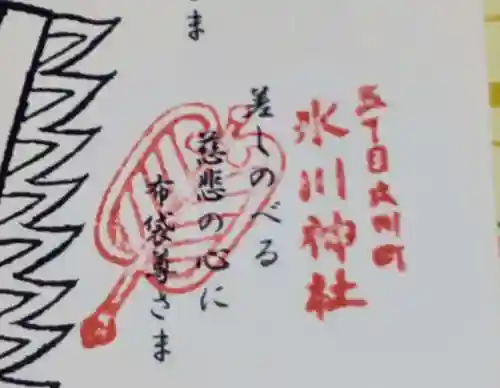 五丁目大川町
氷川神社
差しのべる
慈悲の心に
布袋尊さま
さま